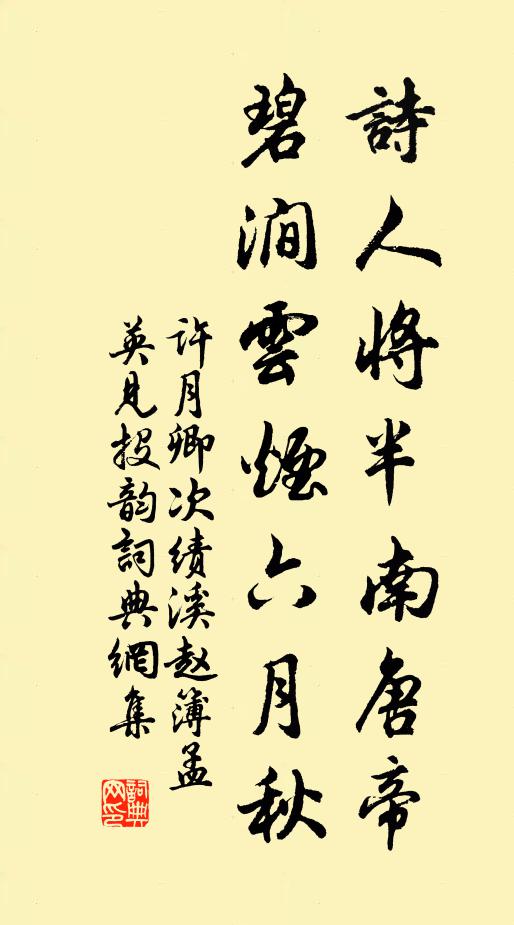 詩人將半南唐帝
碧澗雲煙六月秋
许月卿次绩溪赵簿孟
英见投韵詞典網集
詞典网印